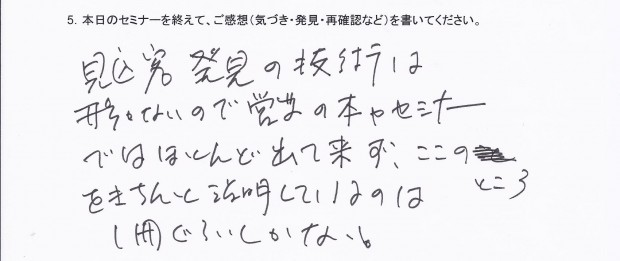 5. 本日のセミナーを終えて、ご感想(気づき・発見・再確認など)を書いてください。
見込客発見の技術は
形がないので営業の本やセミナー
ではほとんど出て来ず、ここの
ところ
をきちんと説明しているのは
1冊ぐらいしかない。